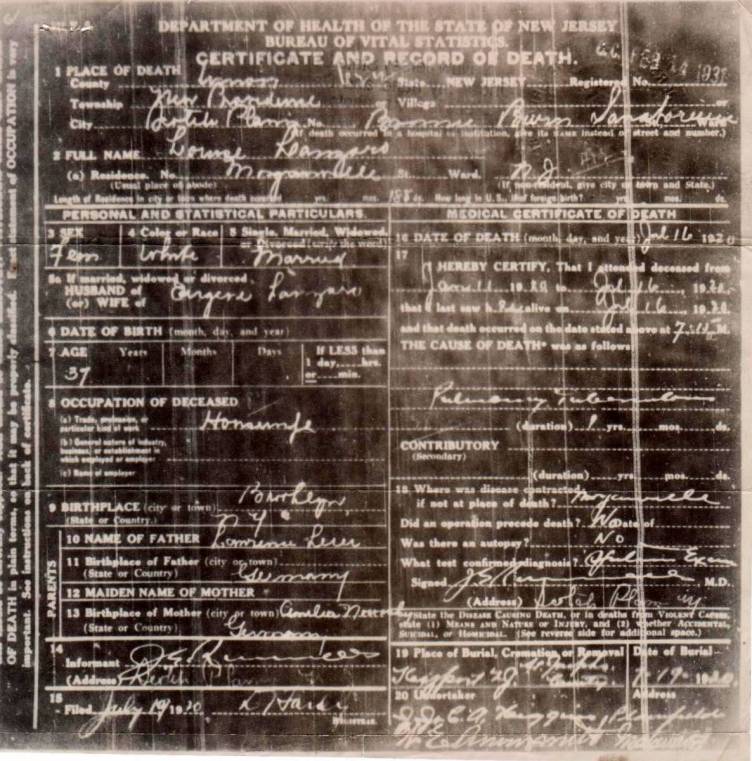 DEPARTMENT OF HEALTH OF THE STATE OF NEW JERSEY
BUREAU OF VITAL STATISTICS.
CERTIFICATE AND RECORD OF DEATH.
FEB 24 1931
1 PLACE OF DEATH
County Union State NEW JERSEY Registered No.
Township New Providence Village or
City Scotch Plains No. Bonnie Burn Sanatorium
(If death occurred in a hospital or institution, give its NAME instead of street and number.)
2 FULL NAME Louise Lanzaro
(a) Residence. No. Morganville St. Ward. N.J.
(Usual place of abode) (If non-resident, give city or town and State.)
Length of Residence in city or town where death occurred yrs. mos. 188 ds. How long in U.S., if of foreign birth? yrs. mos. ds.
PERSONAL AND STATISTICAL PARTICULARS
MEDICAL CERTIFICATE OF DEATH
3 SEX 4 Color or Race 5 Single, Married, Widowed, or Divorced (write the word)
Fem White Married
5a If married, widowed or divorced
HUSBAND of
(or) WIFE of Eugene Lanzaro
6 DATE OF BIRTH (month, day, and year)
7 AGE Years Months Days If LESS than
1 day, hrs.
or min.
37
8 OCCUPATION OF DECEASED
(a) Trade, profession, or
particular kind of work Housewife
(b) General nature of industry,
business, or establishment in
which employed or employer
(c) Name of employer
9 BIRTHPLACE (city or town) Brooklyn
(State or Country.) N Y
PARENTS
10 NAME OF FATHER Lawrence
11 Birthplace of Father (city or town)
(State or Country) Germany
12 MAIDEN NAME OF MOTHER
13 Birthplace of Mother (city or town) Amelia
(State or Country) Germany
14
Informant J E
(Address) Scotch Plains
15
Filed July 19 1920 Hardy
REGISTRAR.
16 DATE OF DEATH (month, day, and year) Jul 16 1920
17
I HEREBY CERTIFY, That I attended deceased from
Jan 11 1920 to Jul 16 1920
that I last saw her alive on Jul 16 1920
and that death occurred on the date stated above at M.
THE CAUSE OF DEATH* was as follows:
Pulmonary Tuberculosis
(duration) yrs. mos. ds.
CONTRIBUTORY
(Secondary)
(duration) yrs. mos. ds.
18 Where was disease contracted
if not at place of death? Morganville
Did an operation precede death? No Date of
Was there an autopsy? No
What test confirmed diagnosis? Exam
Signed J E M.D.
(Address) Scotch Plains NJ
*State the DISEASE CAUSING DEATH, or in deaths from VIOLENT CAUSES,
state (1) MEANS AND NATURE OF INJURY, and (2) whether ACCIDENTAL,
SUICIDAL, or HOMICIDAL. (See reverse side for additional space.)
19 Place of Burial, Cremation, or Removal Date of Burial
Keyport NJ St Josephs 7-19 1920
20 Undertaker Address
Plainfield
OF DEATH in plain terms, so that it may be properly classified. Exact statement of OCCUPATION is very
important. See instructions on back of certificate.